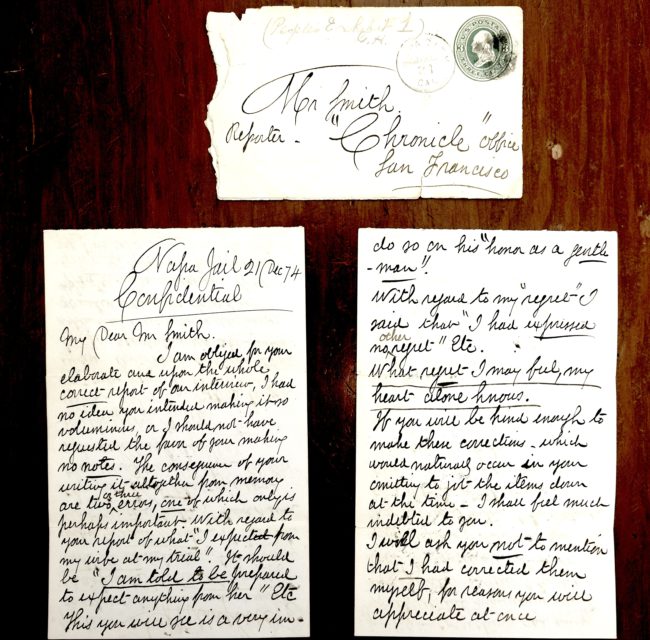 (Peoples Ex No 1)
U.S. POSTAGE
THREE CENTS
CAL
Mr Smith.
Reporter - "Chronicle" office
San Francisco
Napa Jail 21 Dec 74
Confidential
My Dear Mr Smith.
I am obliged for your
elaborate and upon the whole
correct report of our interview, I had
no idea you intended making it so
voluminous, or I should not have
requested the favor of your making
no notes. The consequence of your
writing it altogether from memory
or three
are two errors, one of which only is
perhaps important - With regard to
your report of what "I expected from
my wife at my trial" It should
be "I am told to be prepared
to expect anything from her" Etc
This you will see is a very im-
do so on his "honor as a gentle
-man".
With regard to my "regret" I
said that "I had expressed
other
no regret" Etc.
What regret I may feel, my
heart alone knows.
If you will be kind enough to
make these corrections - which
would naturally occur in your
omitting to jot the items down
at the time - I shall feel much
indebted to you.
I will ask you not to mention
that I had corrected them
myself, for reasons you will
appreciate at once